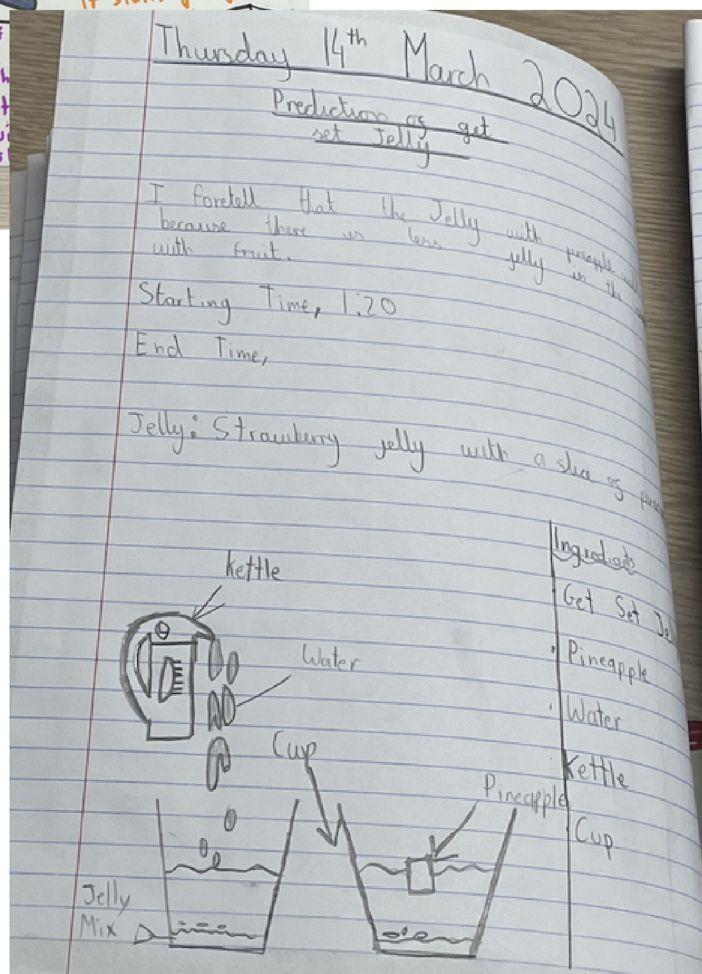 Thursday 14th March 2024
Prediction of get
set Jelly
I foretell that the Jelly with pineapple
because there is less jelly in the
with fruit.
Starting Time, 1:20
End Time,
Jelly: Strawberry jelly with a slice of
Kettle
Water
Cup
Pineapple
Jelly
Mix
Ingredients
Get Set
Pineapple
Water
Kettle
Cup